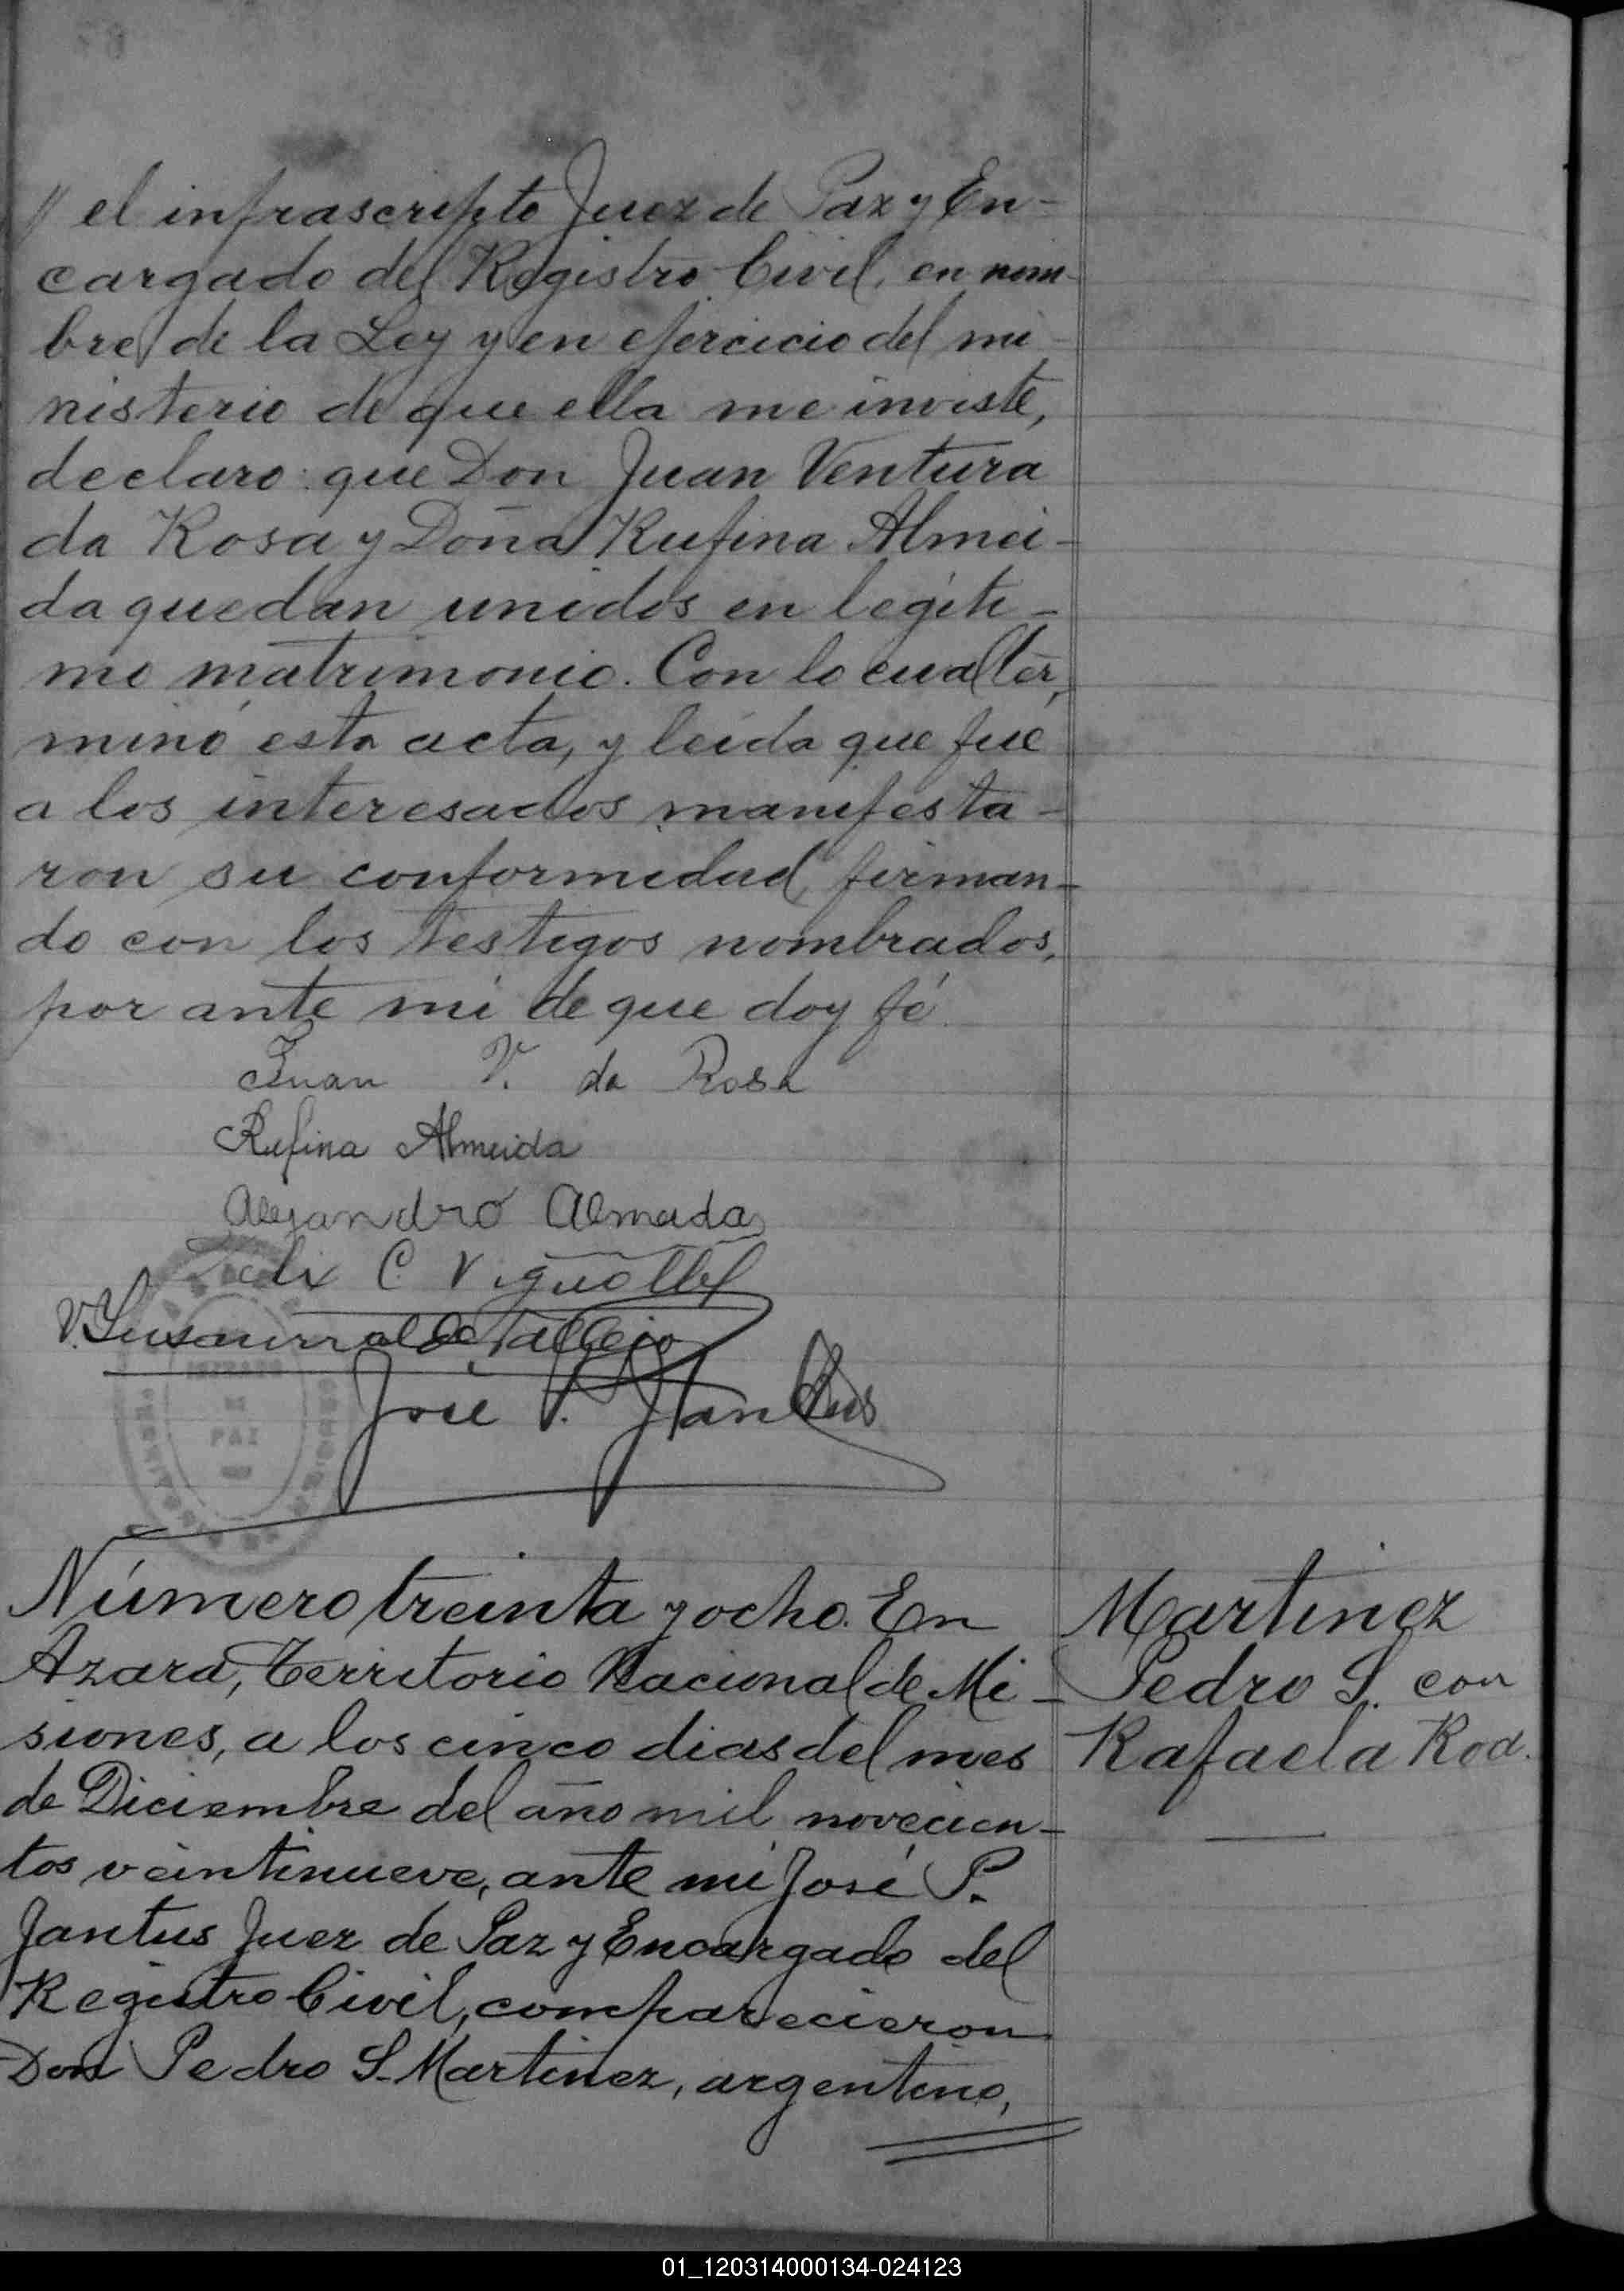 // el infrascripto Juez de Paz y En-
cargado del Registro Civil, en nom-
bre de la Ley y en ejercicio del mi-
nisterio de que ella me inviste,
declaro: que Don Juan Ventura
da Rosa y Doña Rufina Almei-
da quedan unidos en legiti-
mo matrimonio. Con lo cual ter,
minó esta acta, y leida que fué
a los interesados manifesta-
ron su conformedad, firman-
do con los testigos nombrados,
por ante mi de que doy fé.
Juan V. da Rosa
Rufina Almeida
Alejandro Almada
C. Vignolles
V.
José P. Jantus
DE
PAZ
Número treinta y ocho. En
Azara, Territorio Nacional de Mi-
siones, a los cinco dias del mes
de Diciembre del año mil novecien-
tos veintinueve, ante mi José P.
Jantus Juez de Paz y Encargado del
Registro Civil, comparecieron
Don Pedro S. Martinez, argentino,
Martinez
Pedro S. con
Rafaela Rod.
01_120314000134-024123